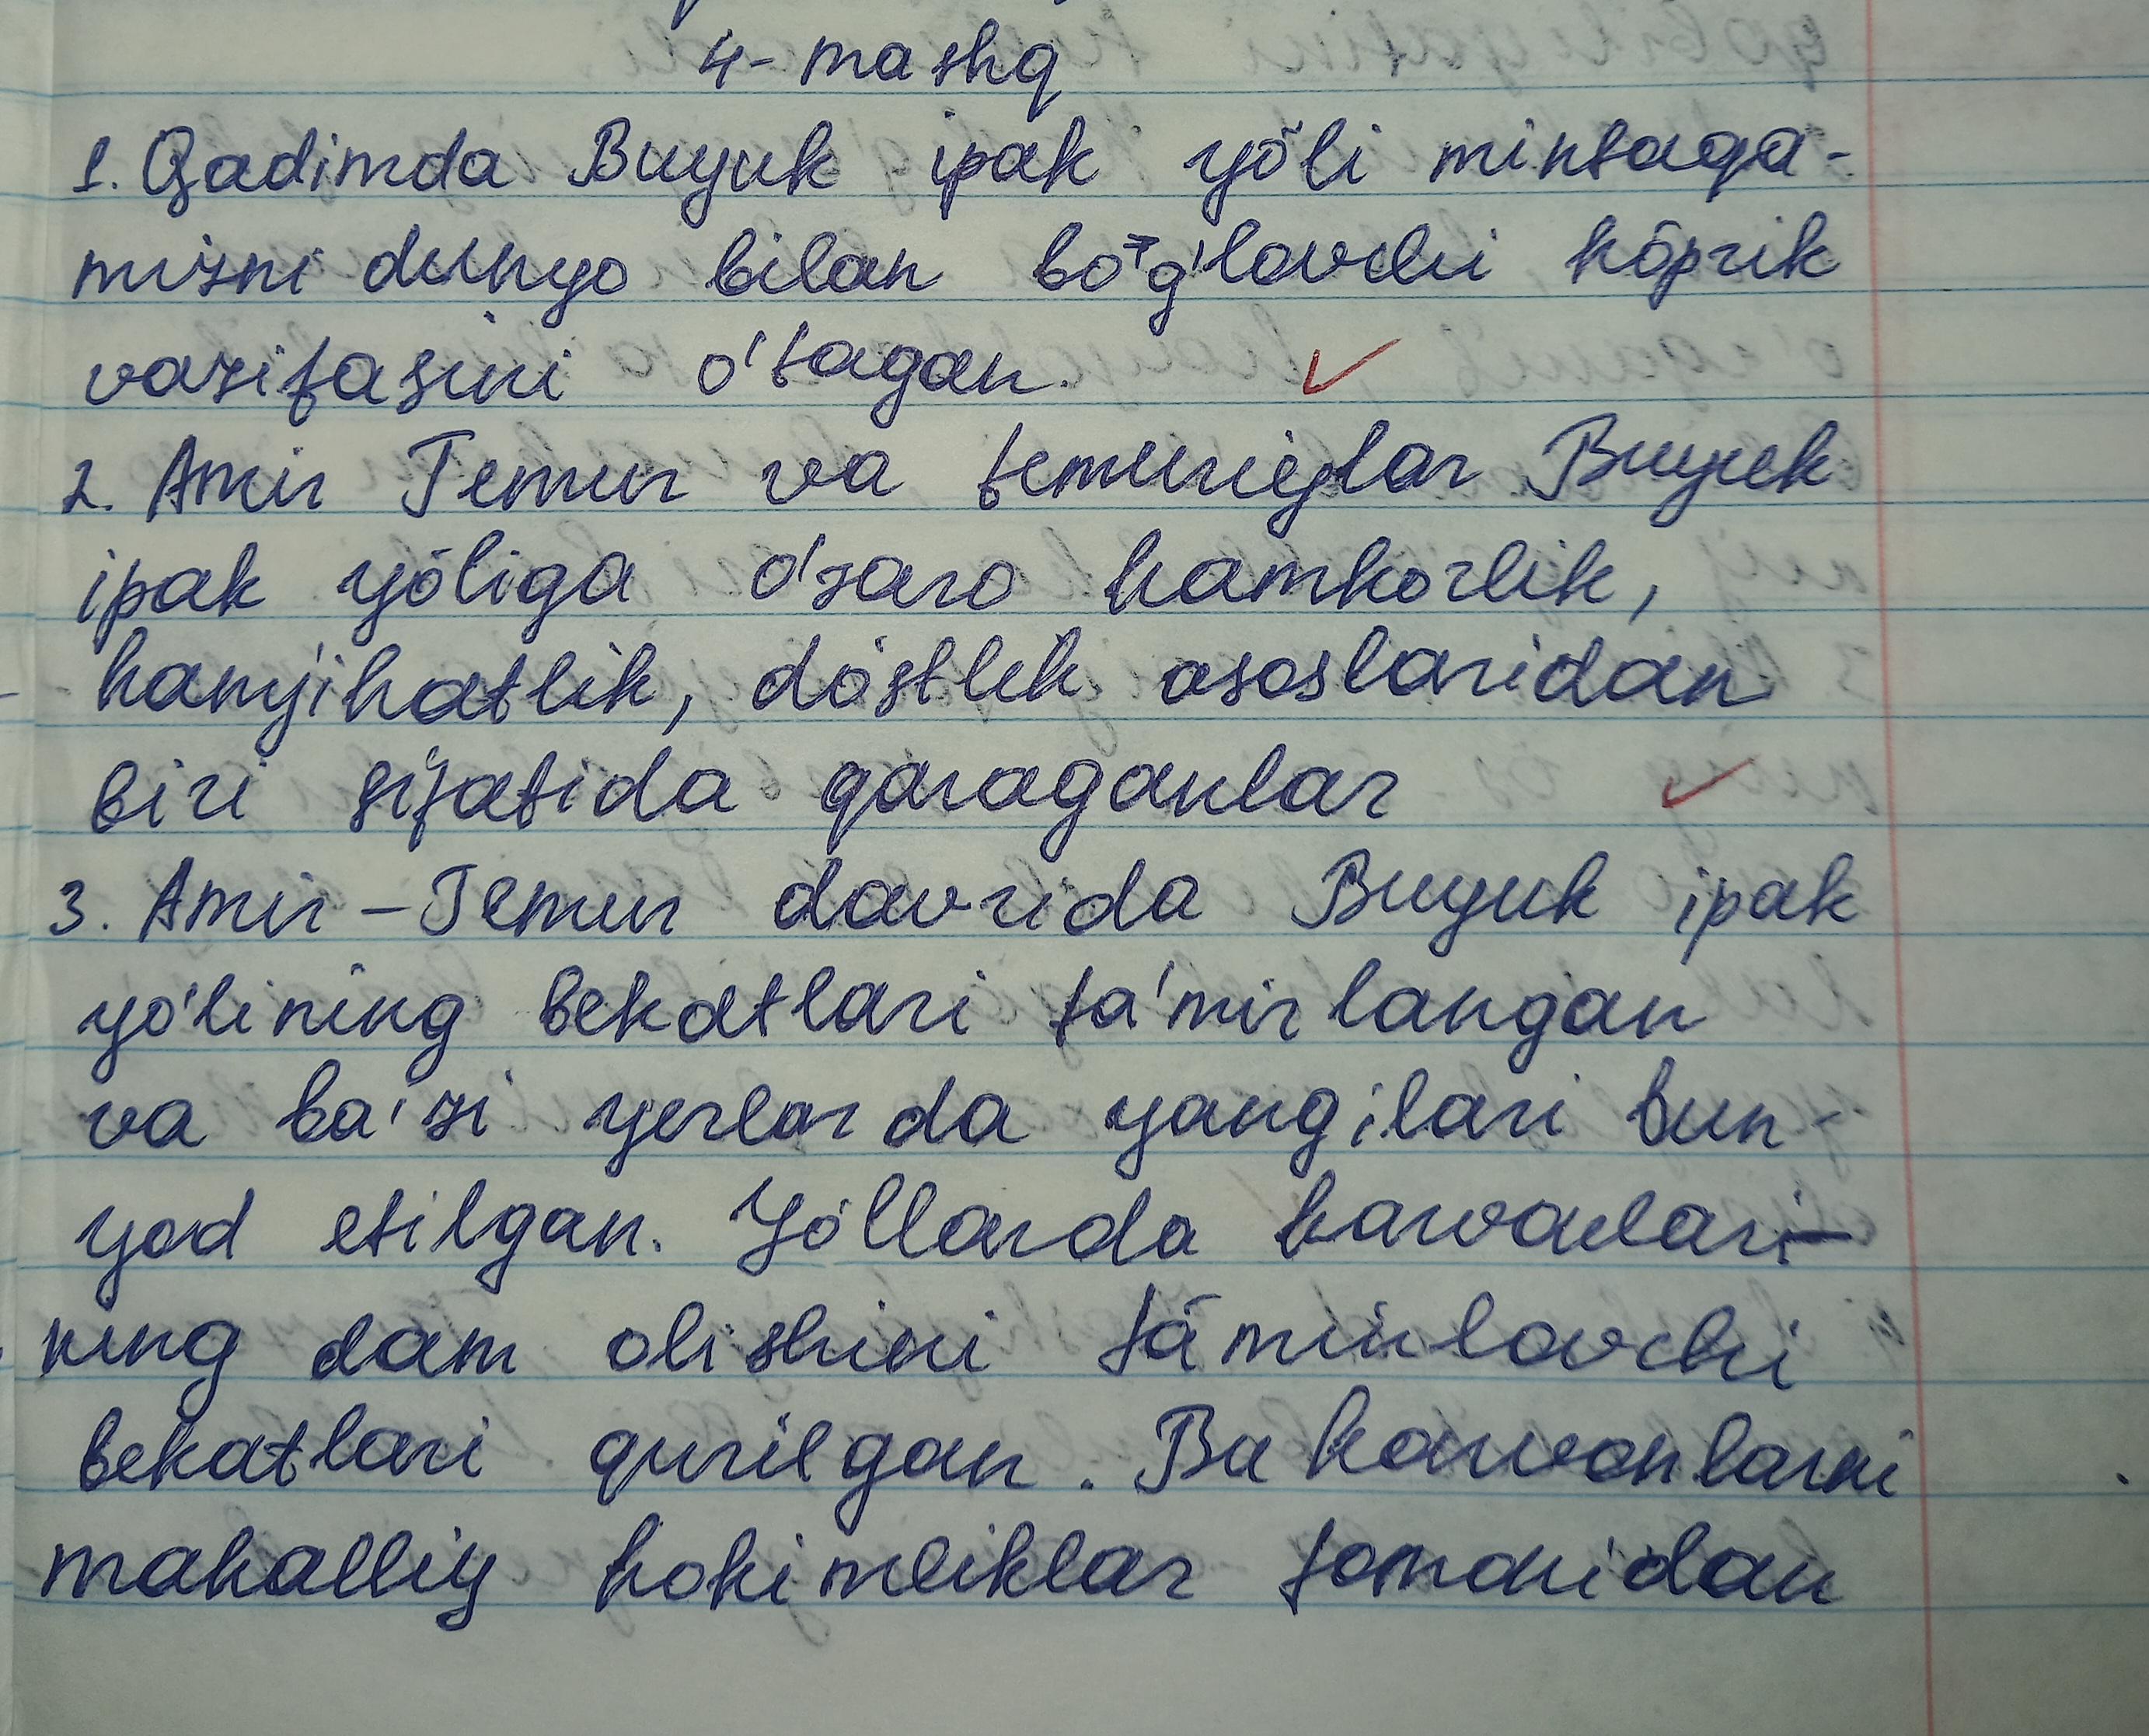 4- mashq
1. Qadimda Buyuk ipak yõli mintaqa-
mizni dunyo bilan bo'g'lovchi kôprik
vazifasini o'tagan.
2. Amir Temur va temuriylar Buyuk
ipak yóliga o'zaro hamkorlik,
hamjihatlik, dóstlik asoslaridan
biri sifatida qaraganlar
3. Amir - Temur davrida Buyuk ipak
yo'lining bekatlari ta'mirlangan
va ba'zi yerlarda yangilari bun-
yod etilgan. Yóllarda karvonlari-
ning dam olishini táminlovchi
bekatlari qurilgan. Bu karvonlarni
mahalliy hokimliklar tomonidan